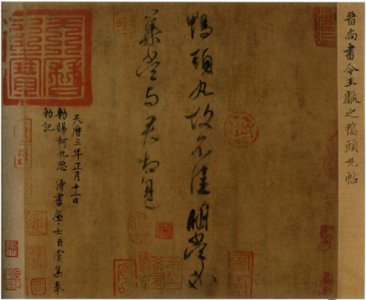 晉尚書令王獻之鴨頭丸帖
鴨頭丸故不佳明當必
集當與君相見
天曆三年正月十二日
敕賜柯九思侍書學士臣虞集奉
敕記
天曆之寶